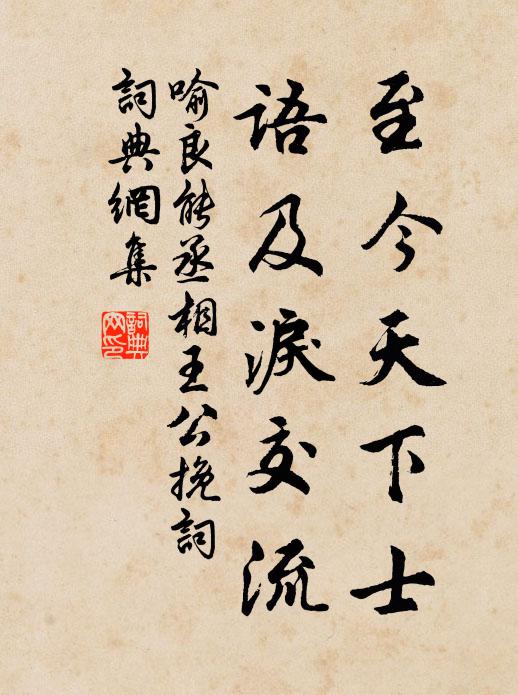 至今天下士
語及淚交流
喻良能丞相王公挽詞
詞典網集
詞典網印